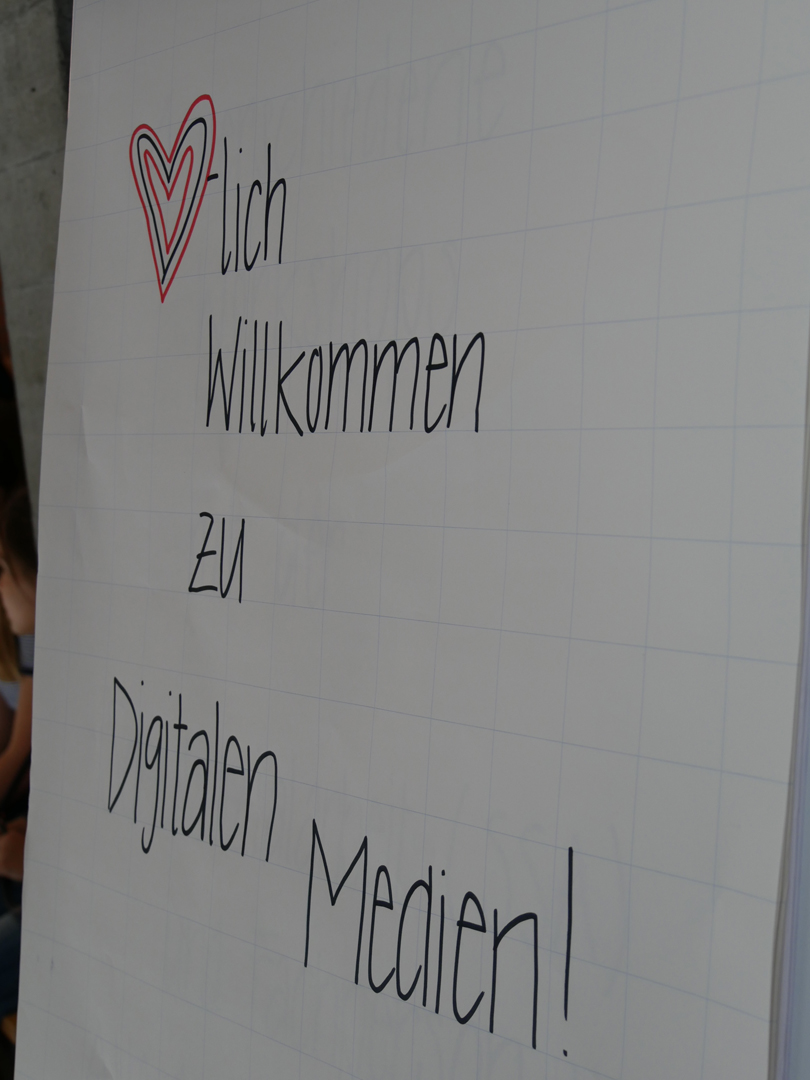 ♥-lich
Willkommen
zu
Digitalen
Medien!